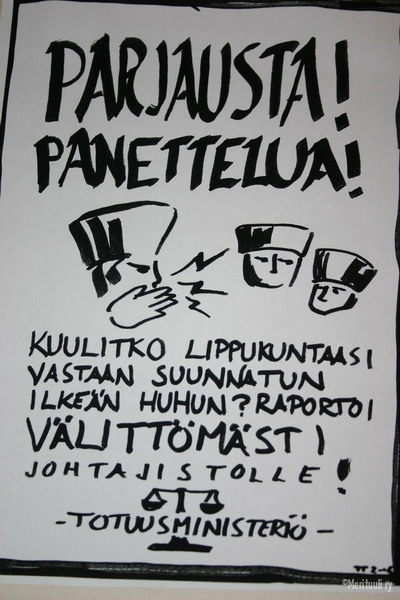 PARJAUSTA!
PANETTELUA!
KUULITKO LIPPUKUNTAASI
VASTAAN SUUNNATUN
ILKEÄN HUHUN? RAPORTOI
VÄLITTÖMÄSTI
JOHTAJISTOLLE!
-TOTUUSMINISTERIÖ-
©Merituuli ry